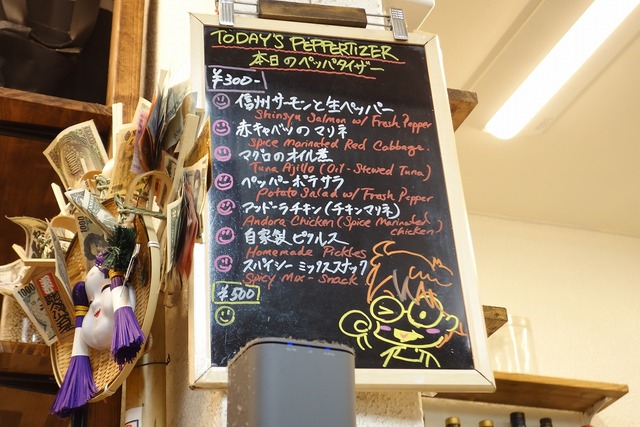 TODAY'S PEPPERTIZER
本日のペッパタイザー
¥300-
信州サーモンと生ペッパー
Shinsyu Salmon w/ Fresh Pepper
赤キャベツのマリネ
Spice Marinated Red Cabbage.
マグロのオイル煮
Tuna Ajillo (Oil-Stewed Tuna)
ペッパーポテサラ
Potato Salad w/ Fresh Pepper
アンドーラチキン(チキンマリネ)
Andora Chicken (Spice Marinated chicken)
自家製ピクルス
Homemade Pickles
スパイシーミックススナック
Spicy Mix-Snack
¥500